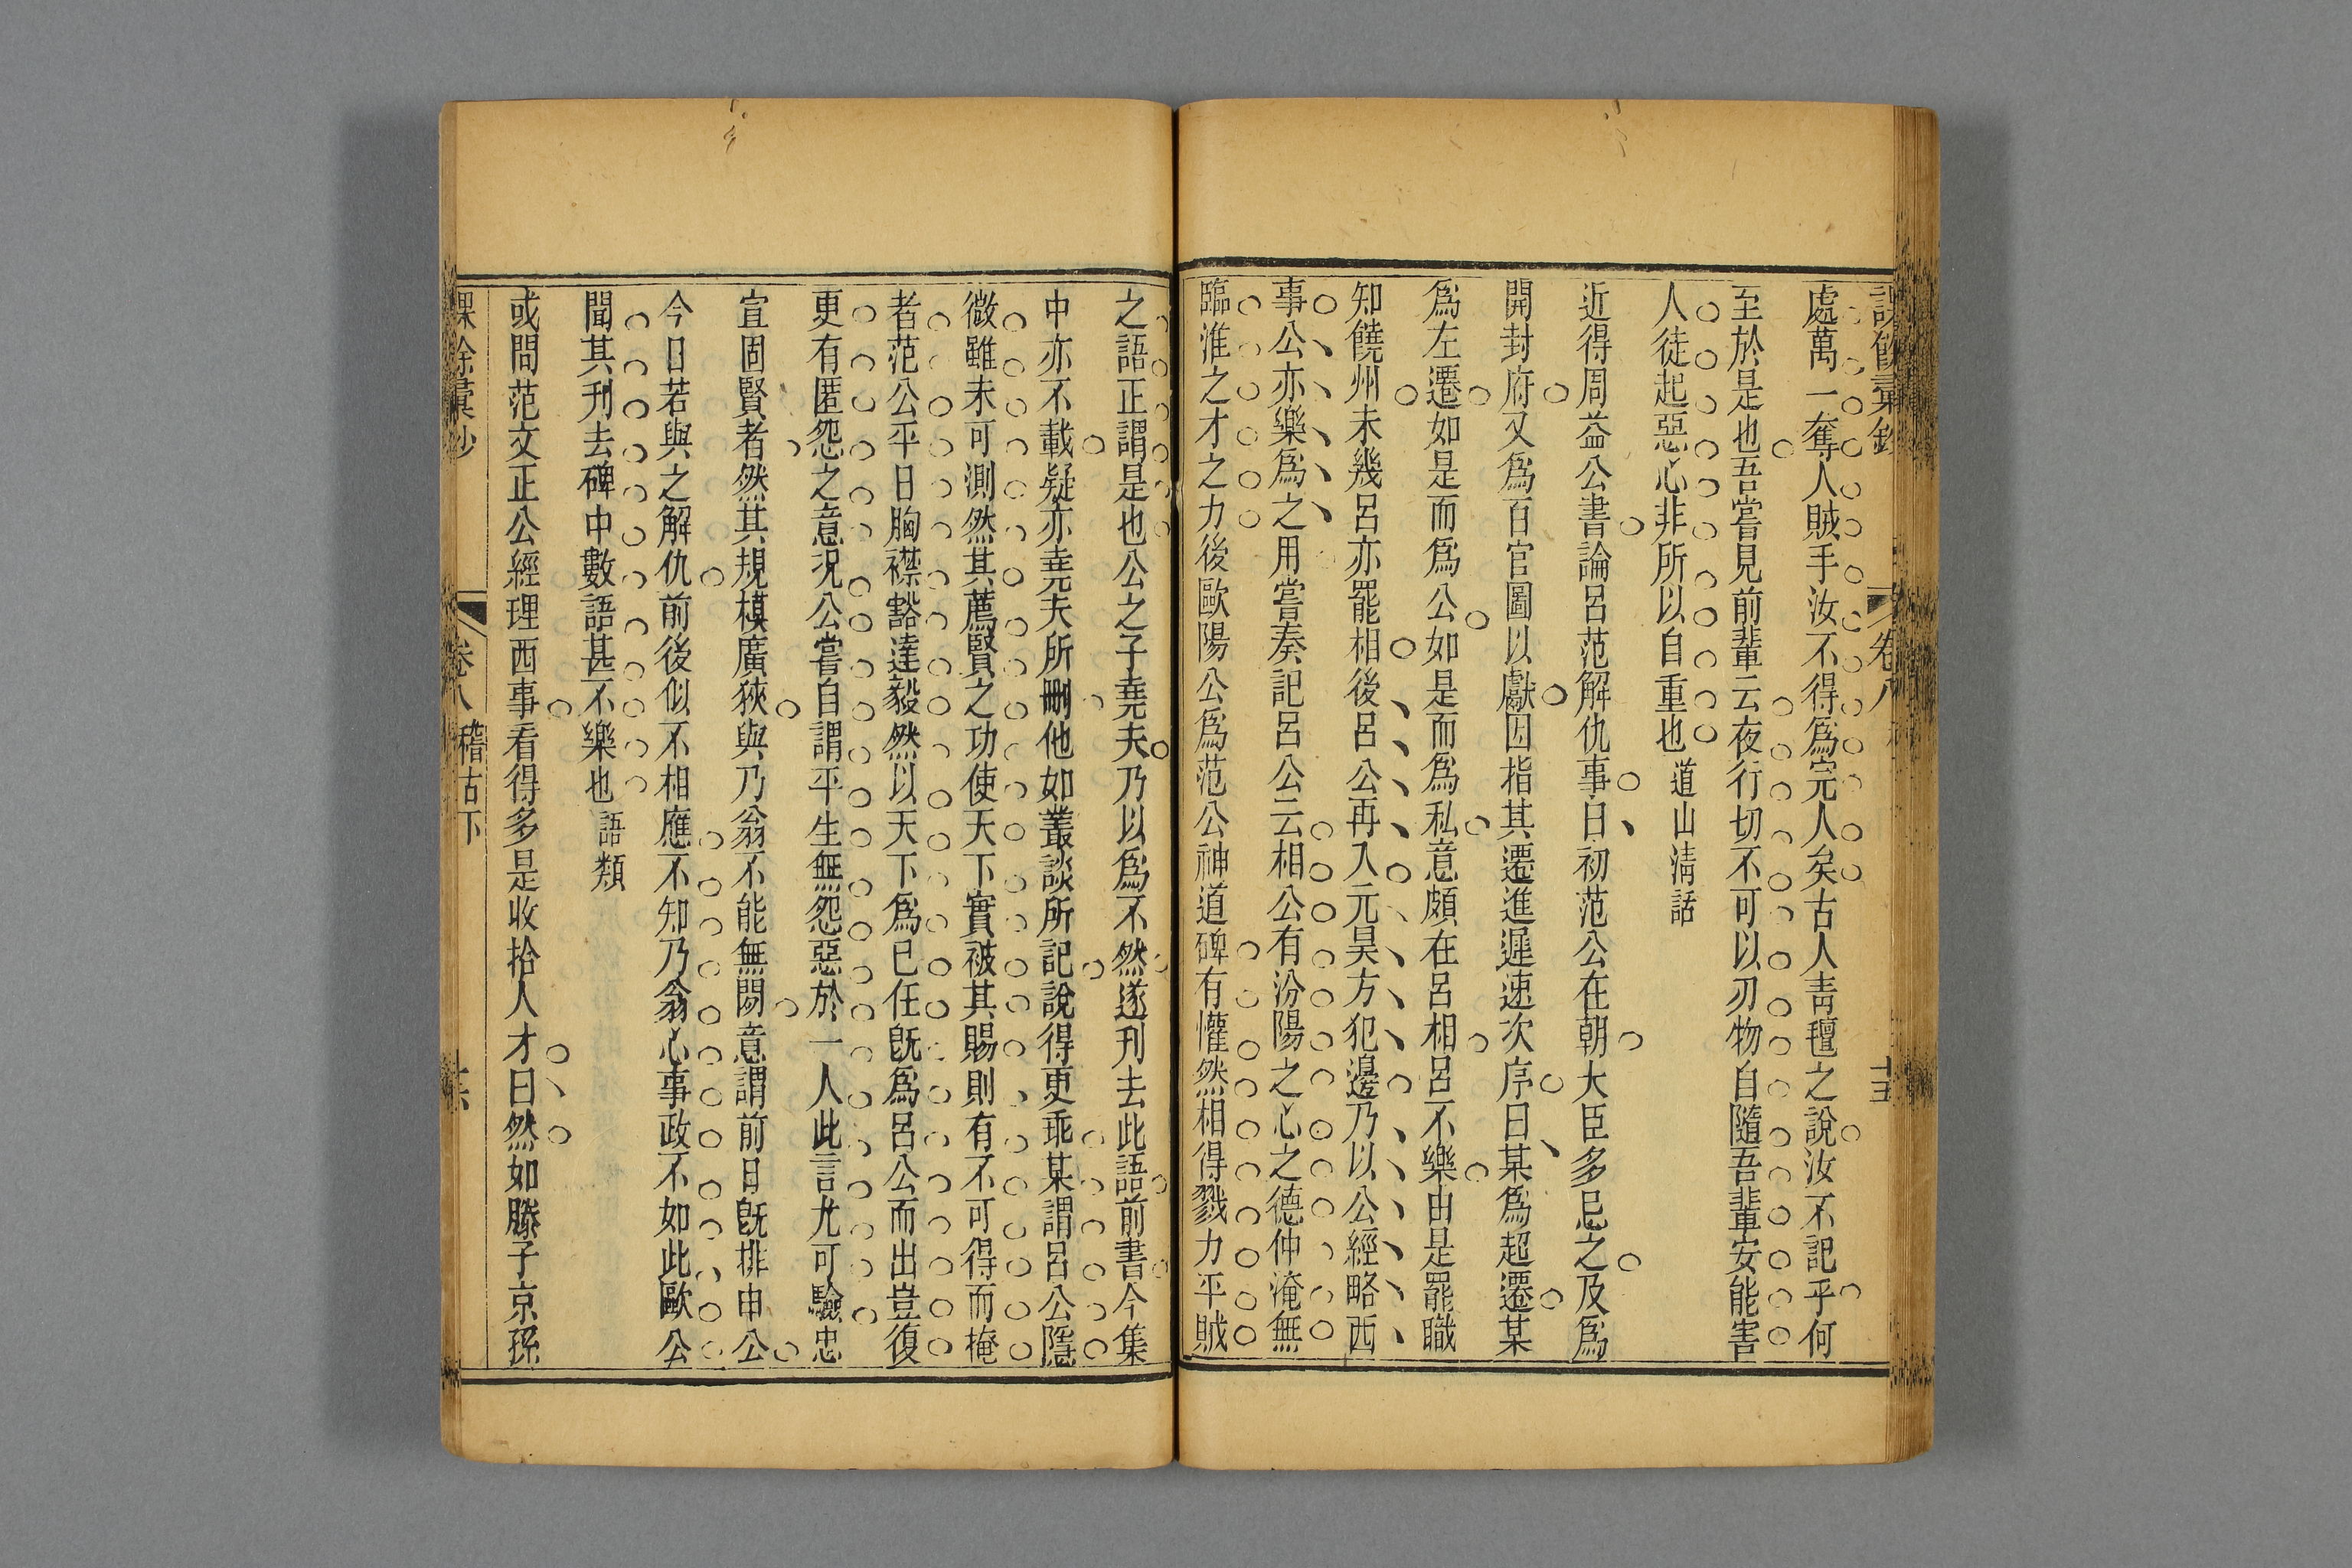 課餘彚鈔 卷八 十五
處萬一奪人賊手汝不得爲完人矣古人靑氊之說汝不記乎何
至於是也吾嘗見前輩云夜行切不可以刃物自隨吾輩安能害
人徒起惡心非所以自重也道山淸話
近得周益公書論呂范解仇事曰初范公在朝大臣多忌之及爲
開封府又爲百官圖以獻因指其遷進遲速次序曰某爲超遷某
爲左遷如是而爲公如是而爲私意頗在呂相呂不樂由是罷職
知饒州未幾呂亦罷相後呂公再入元昊方犯邊乃以公經略西
事公亦樂爲之用嘗奏記呂公云相公有汾陽之心之德仲淹無
臨淮之才之力後歐陽公爲范公神道碑有懽然相得戮力平賊
之語正謂是也公之子堯夫乃以爲不然遂刋去此語前書今集
中亦不載疑亦堯夫所刪他如叢談所記說得更乖某謂呂公隱
微雖未可測然其薦賢之功使天下實被其賜則有不可得而掩
者范公平日胸襟豁達毅然以天下爲已任旣爲呂公而出豈復
更有匿怨之意况公嘗自謂平生無怨惡於一人此言尤可驗忠
宣固賢者然其規模廣狹與乃翁不能無閒意謂前日旣排申公
今日若與之解仇前後似不相應不知乃翁心事政不如此歐公
聞其刋去碑中數語甚不樂也語類
或問范文正公經理西事看得多是收拾人才曰然如滕子京孫
課餘彚鈔 卷八 稽古下 十六